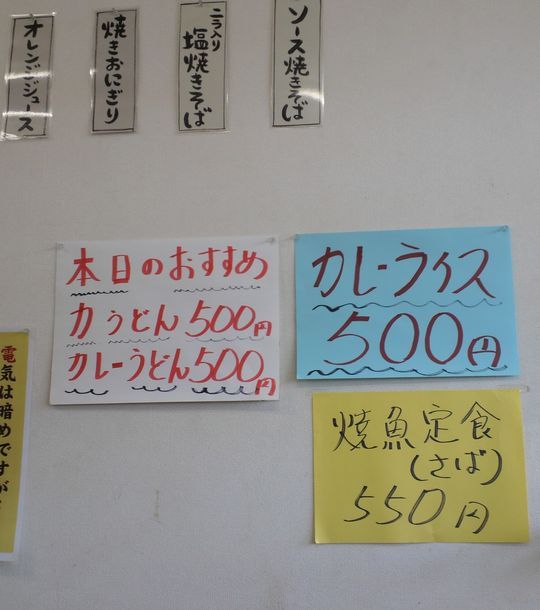 ソース焼きそば
ニラ入り
塩焼きそば
焼きおにぎり
オレンジジュース
本日のおすすめ
力うどん500円
カレーうどん500円
カレーライス
500円
焼魚定食
(さば)
550円
電気は暗めですが